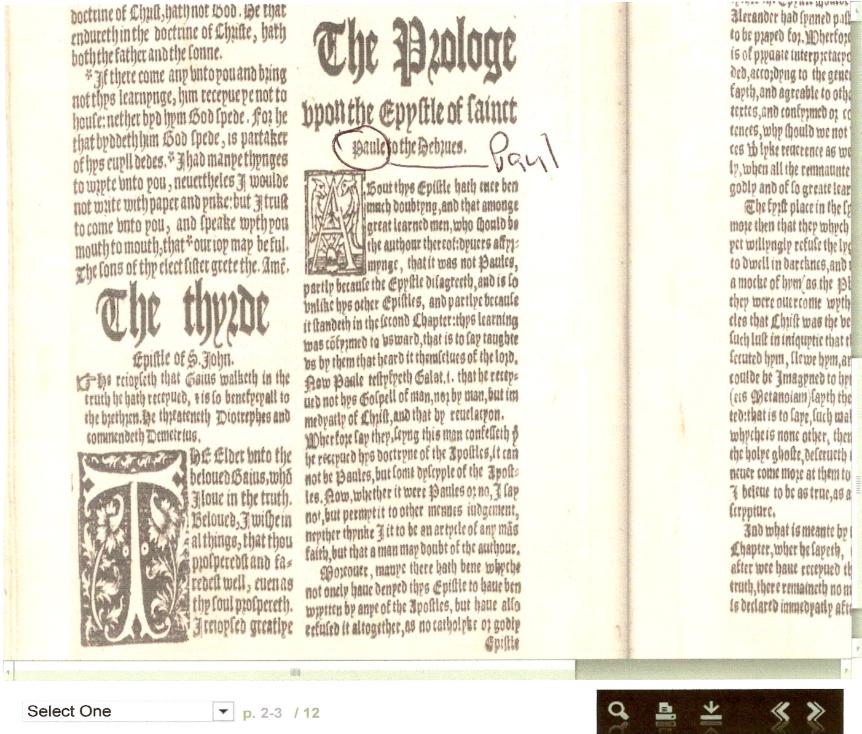 doctrine of Christ, hath not God. He that
endureth in the doctrine of Christe, hath
both the father and the sonne.
* If there come any vnto you and bring
not thys learnynge, him receyue ye not to
house: nether byd hym God spede. For he
that byddeth him God spede, is partaker
of hys euyll dedes. * I had manye thynges
to wryte vnto you, neuertheles I woulde
not write with paper and ynke: but I trust
to come vnto you, and speake wyth you
mouth to mouth, that * our ioy may be ful.
The sons of thy elect sister grete the. Amē.
The thyrde
Epistle of S. John.
He reioyseth that Gaius walketh in the
truth he hath receyued,
the brethren. He threateneth Diotrephes and
commendeth Demetrius.
THE Elder vnto the
beloued Gaius, whō
I loue in the truth.
Beloued, I wishe in
al things, that thou
prosperedst and fa-
redest well, euen as
thy soul prospereth.
I reioysed greatlye
The Prologe
vpon the Epystle of sainct
Paule to the Hebrues.
Paul
ABout thys Epistle hath euer ben
much doubtyng, and that amonge
great learned men, who should be
the authour therof: dyuers affyr-
mynge, that it was not Paules,
partly because the Epystle disagreeth, and is so
vnlike hys other Epistles, and partlye because
it standeth in the second Chapter: thys learning
was cōfyrmed to vsward, that is to say taughte
vs by them that heard it themselues of the lord.
Now Paule testyfyeth Galat.i. that he recey-
ued not hys Gospell of man, nor by man, but im
medyatly of Christ, and that by reuelacyon.
Wherfore say they, seyng this man confesseth þ
he receyued hys doctryne of the Apostles, it can
not be Paules, but som dyscyple of the Apost-
les. Now, whether it were Paules or no, I say
not, but permyt it to other mennes iudgement,
neyther thynke I it to be an artycle of any mās
faith, but that a man may doubt of the authour.
Moreouer, manye there hath bene whyche
not onely haue denyed thys Epistle to haue ben
wrytten by anye of the Apostles, but haue also
refused it altogether, as no catholyke or godly
Epistle
Alexander had synned
to be prayed for. Wherfore
is of pryuate
ded, accordyng to the
fayth, and agreable to
textes, and confyrmed
tences, why should we not
ces wyth lyke reuerence as
ly, when all the remnaunte
godly and of so greate
The fyrst place in the
more then that they whych
yet willyngly refuse the
to dwell in darcknes, and
a mocke of hym as the
they were ouercome wyth
cles that Christ was the
such lust in iniquytie that
secuted hym, slewe hym,
coulde be Imagyned to
(eis Metanoian) sayth the
ted: that is to saye, such
whyche is none other, then
the holye ghoste, deserueth
neuer come more at them to
I beleue to be as true, as a
scrypture.
And what is meante by
Chapter, wher he sayeth,
after wee haue receyued
truth, there remaineth no
is declared immedyatly
Select One
p. 2-3 / 12